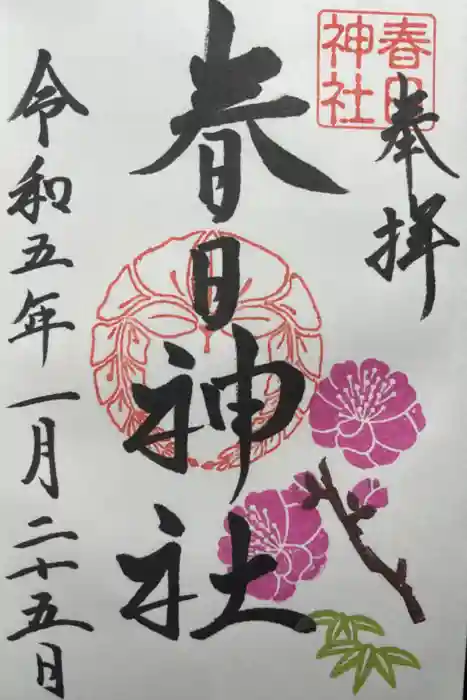 奉拝
春日神社
春日神社
令和五年一月二十五日